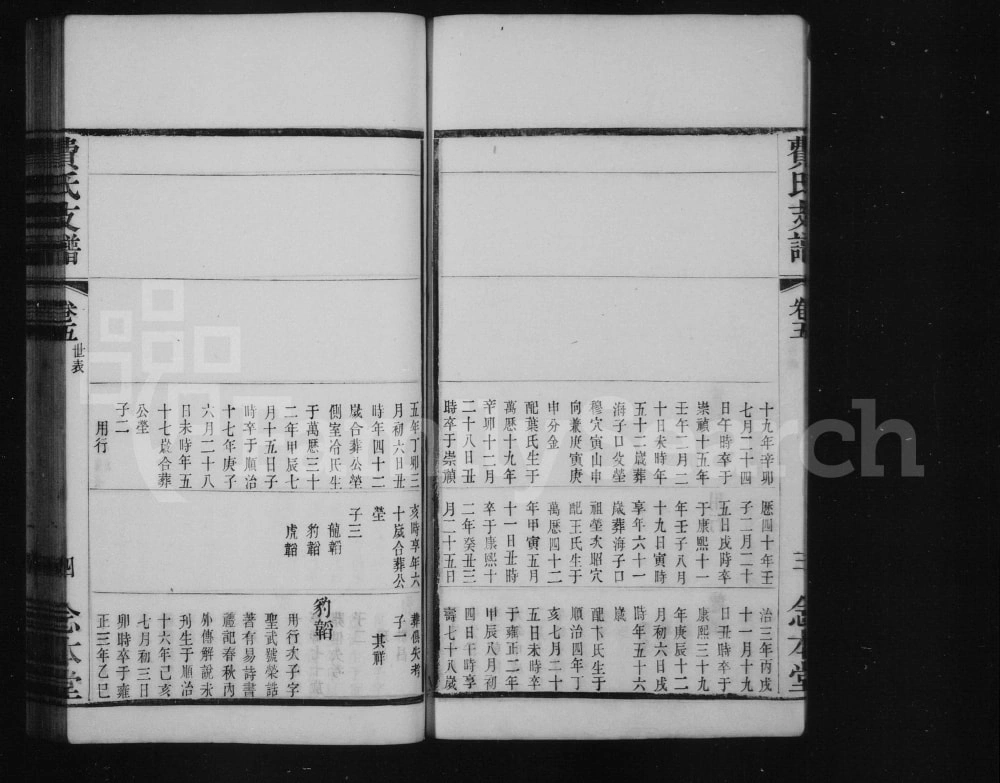 費氏支譜
卷五
三
念本堂
十九年辛卯
七月二十四
日午時卒于
崇禎十五年
壬午二月二
十日未時年
五十二歲葬
海子口攵塋
穆穴寅山申
向兼庚寅庚
申分金
配葉氏生于
萬歷十九年
辛卯十二月
二十八日丑
時卒于崇禎
歷四十年壬
子二月二十
五日戌時卒
于康熙十一
年壬子八月
十九日寅時
享年六十一
歲葬海子口
祖塋次昭穴
配王氏生于
萬歷四十二
年甲寅五月
十一日丑時
卒于康熙十
二年癸丑三
月二十五日
治三年丙戌
十一月十九
日丑時卒于
康熙三十九
年庚辰十二
月初六日戌
時年五十六
歲
配卞氏生于
順治四年丁
亥七月二十
五日未時卒
于雍正二年
甲辰八月初
四日午時享
壽七十八歲
五年丁卯三
月初六日丑
時年四十二
歲合葬公塋
側室冶氏生
于萬歷三十
二年甲辰七
月十五日子
時卒于順治
十七年庚子
六月二十八
日未時年五
十七歲合葬
公塋
子二
用行
亥時享年六
十歲合葬公
塋
子三
龍韜
豹韜
虎韜
葬俱失考
子一
其祥
豹韜
用行次子字
聖武號榮喆
著有易詩書
麓記春秋丙
外傳解說未
刋生于順治
十六年己亥
七月初三日
卯時卒于雍
正三年乙巳
費氏支譜
卷五
世表
四
念本堂
FamilySearch